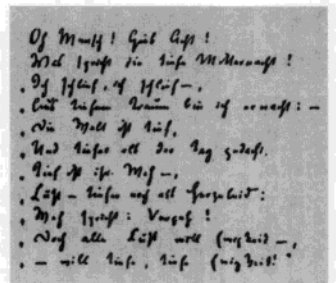 Oh Mensch! Gieb Acht!
Was spricht die tiefe Mitternacht?
„Ich schlief, ich schlief –,
„Aus tiefem Traum bin ich erwacht: –
„Die Welt ist tief,
„Und tiefer als der Tag gedacht.
„Tief ist ihr Weh –,
„Lust – tiefer noch als Herzeleid:
„Weh spricht: Vergeh!
„Doch alle Lust will Ewigkeit –,
„– will tiefe, tiefe Ewigkeit!"